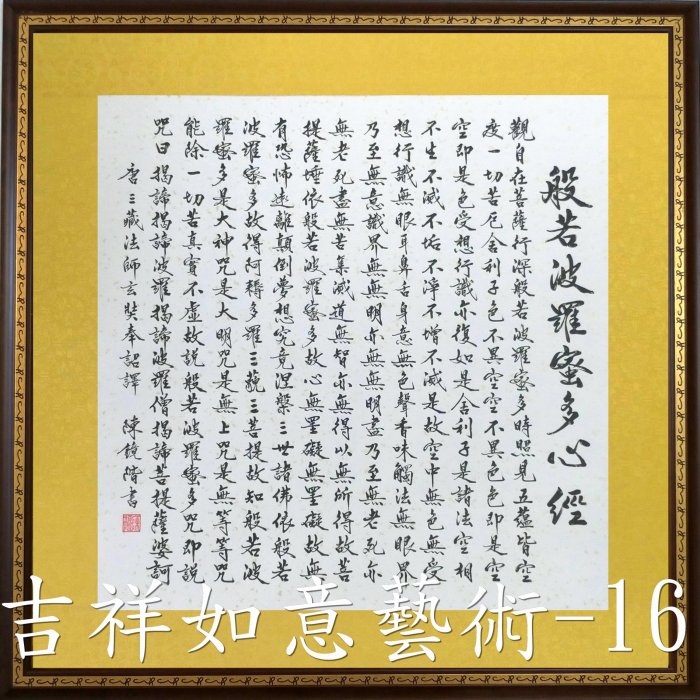 般若波羅蜜多心經
觀自在菩薩行深般若波羅蜜多時照見五蘊皆空
度一切苦厄舍利子色不異空空不異色色即是空
空即是色受想行識亦復如是舍利子是諸法空相
不生不滅不垢不淨不增不減是故空中無色無受
想行識無眼耳鼻舌身意無色聲香味觸法無眼界
乃至無意識界無無明亦無無明盡乃至無老死亦
無老死盡無苦集滅道無智亦無得以無所得故菩
提薩埵依般若波羅蜜多故心無罣礙無罣礙故無
有恐怖遠離顛倒夢想究竟涅槃三世諸佛依般若
波羅蜜多故得阿耨多羅三藐三菩提故知般若波
羅蜜多是大神咒是大明咒是無上咒是無等等咒
能除一切苦真實不虛故說般若波羅蜜多咒即說
咒曰揭諦揭諦波羅揭諦波羅僧揭諦菩提薩婆訶
唐三藏法師玄奘奉詔譯 陳鏡階書
吉祥如意藝術-16